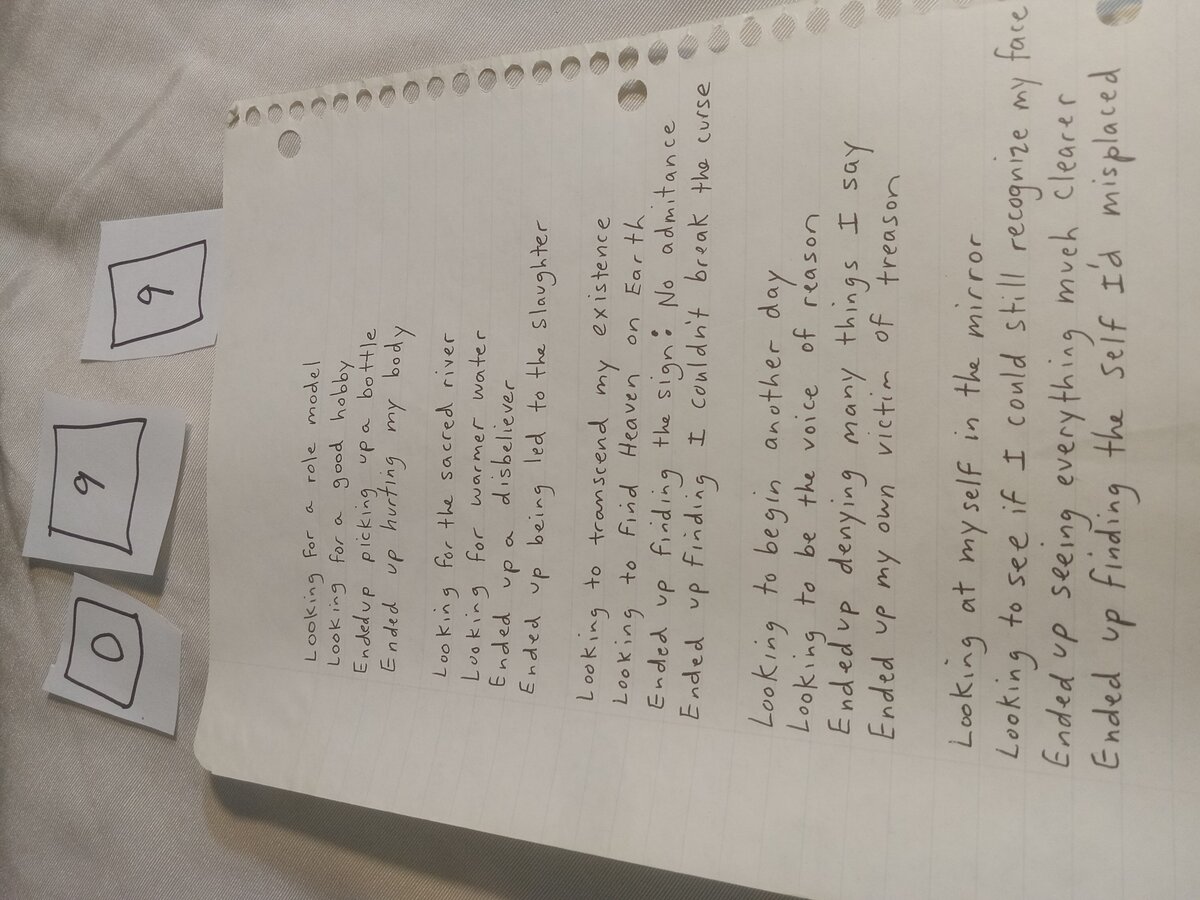 0 9 9
Looking for a role model
Looking for a good hobby
Endedup picking up a bottle
Ended up hurting my body
Looking for the sacred river
Looking for warmer water
Ended up a disbeliever
Ended up being led to the slaughter
Looking to transcend my existence
Looking to find Heaven on Earth
Ended up finding the sign: No admitance
Ended up finding I couldn't break the curse
Looking to begin another day
Looking to be the voice of reason
Endedup denying many things I say
Ended up my own victim of treason
Looking at myself in the mirror
Looking to see if I could still recognize my face
Ended up seeing everything much clearer
Ended up finding the self I'd misplaced